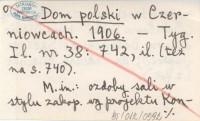 Dom polski w Czer-
niowcach. 1906. — Tyg.
Il. nr 38: 742, il. (też
na s. 740).
M. in.: ozdoby sali w
stylu zakop. wg projektu Kon-